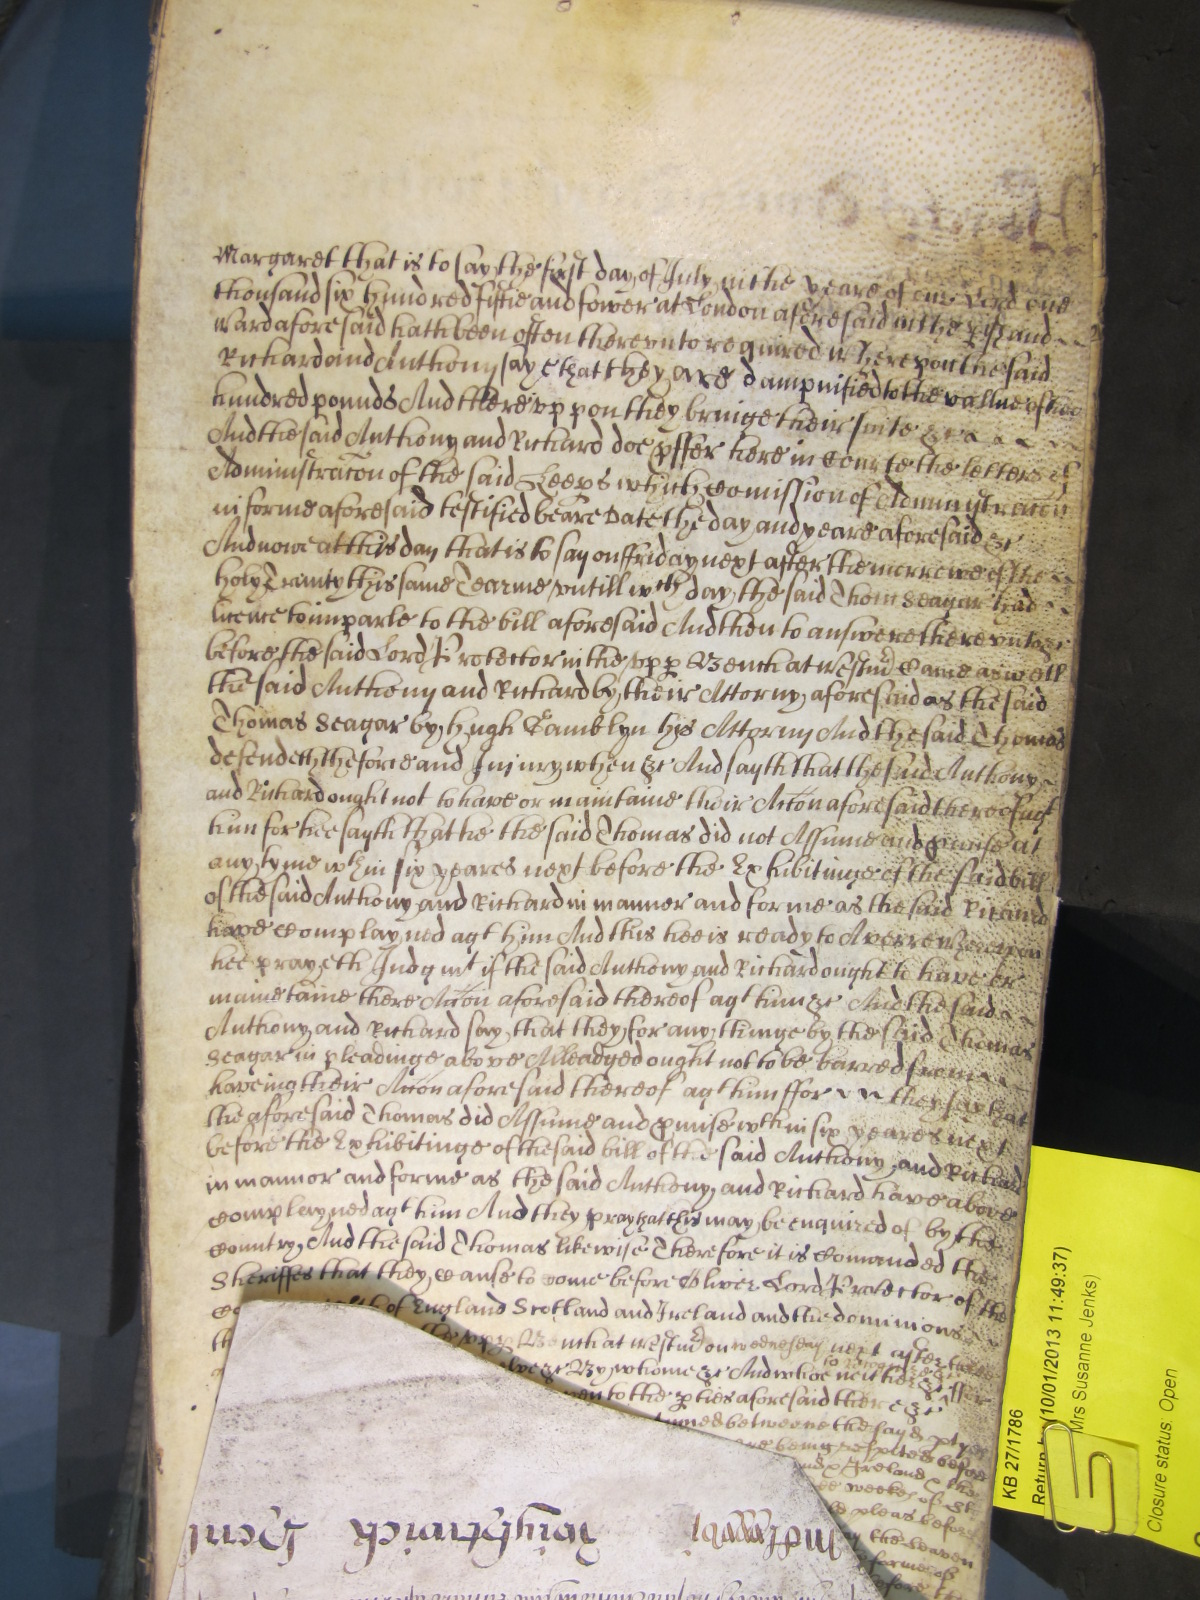 Margaret that is to say the first day of July in the yeare of our Lord one
thousand six hundred fiftie and fower at London aforesaid in the pish and
Ward aforesaid hath been often therevnto required Wherevpon the said
Richard and Anthony saye that they are dampnified to the vallue of two
hundred pounds And therevppon they bringe their suite &c
And the said Anthony and Richard doe pffer here in Courte the letters of
Administracon of the said Leeps which Comission of Administracon
in forme aforesaid testified beare Date the day and yeare aforesaid &c
And nowe at this day that is to say on ffriday next after the morrowe of the
Holy Trinity this same Tearme vntill wch day the said Thom Seagar had
licence to imparle to the bill aforesaid And then to answere therevnto &c
before the said Lord Protector in the vpp Bench at Westmr Came aswell
the said Anthony and Richard by their Attorny aforesaid as the said
Thomas Seagar by Hugh Tamblyn his Attorny And the said Thomas
defendeth the force and Iniury when &c And sayth that the said Anthony
and Richard ought not to have or maintaine their Accon aforesaid thereof agt
him for hee sayth that he the said Thomas did not Assume and pmise at
any tyme wthin six yeares next before the Exhibitinge of the said bill
of the said Anthony and Richard in manner and forme as the said Richard
have complayned agt him And this hee is ready to Averre Wherevpon
hee prayeth Judgmt if the said Anthony and Richard ought to have or
mainetaine there Accon aforesaid thereof agt him &c And the said
Anthony and Richard say that they for any thinge by the said Thomas
Seagar in pleadinge above Alleadged ought not to be barred from
haveing their Accon aforesaid thereof agt him ffor they say that
the aforesaid Thomas did Assume and pmise wthin six yeares next
before the Exhibitinge of the said bill of the said Anthony and Richard
in mannor and forme as the said Anthony and Richard have above
complayned agt him And they pray that this may be enquired of by the
Country And the said Thomas likewise Therefore it is Comanded the
Sheriffes that they cause to come before Oliver Lord Protector of the
of England Scotland and Ireland and the dominions
the vpp Bench at Westmr on wednesday next after
&c By whome &c And whoe neither &c
to the pties aforesaid there &c
betweene the sayd ptyes
being respited before
Ireland
weekes of St
pleas before
the
forme of
before
KB 27/1786
Return by (10/01/2013 11:49:37)
Mrs Susanne Jenks)
Closure status: Open